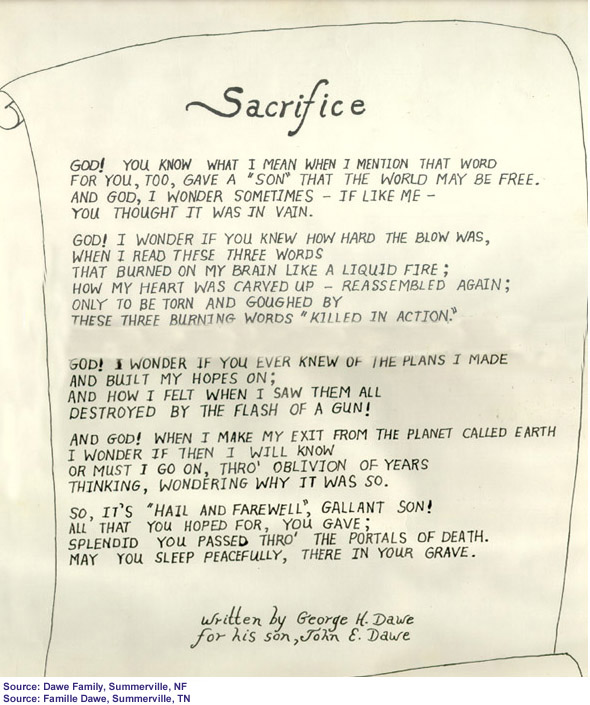 Sacrifice
GOD! YOU KNOW WHAT I MEAN WHEN I MENTION THAT WORD
FOR YOU, TOO, GAVE A "SON" THAT THE WORLD MAY BE FREE.
AND GOD, I WONDER SOMETIMES - IF LIKE ME -
YOU THOUGHT IT WAS IN VAIN.
GOD! I WONDER IF YOU KNEW HOW HARD THE BLOW WAS,
WHEN I READ THESE THREE WORDS
THAT BURNED ON MY BRAIN LIKE A LIQUID FIRE;
HOW MY HEART WAS CARVED UP - REASSEMBLED AGAIN;
ONLY TO BE TORN AND GOUGHED BY
THESE THREE BURNING WORDS "KILLED IN ACTION."
GOD! I WONDER IF YOU EVER KNEW OF THE PLANS I MADE
AND BUILT MY HOPES ON;
AND HOW I FELT WHEN I SAW THEM ALL
DESTROYED BY THE FLASH OF A GUN!
AND GOD! WHEN I MAKE MY EXIT FROM THE PLANET CALLED EARTH
I WONDER IF THEN I WILL KNOW
OR MUST I GO ON, THRO' OBLIVION OF YEARS
THINKING, WONDERING WHY IT WAS SO.
SO, IT'S "HAIL AND FAREWELL", GALLANT SON!
ALL THAT YOU HOPED FOR, YOU GAVE;
SPLENDID YOU PASSED THRO' THE PORTALS OF DEATH.
MAY YOU SLEEP PEACEFULLY, THERE IN YOUR GRAVE.
Written by George H. Dawe
for his son, John E. Dawe
Source: Dawe Family, Summerville, NF
Source: Famille Dawe, Summerville, TN